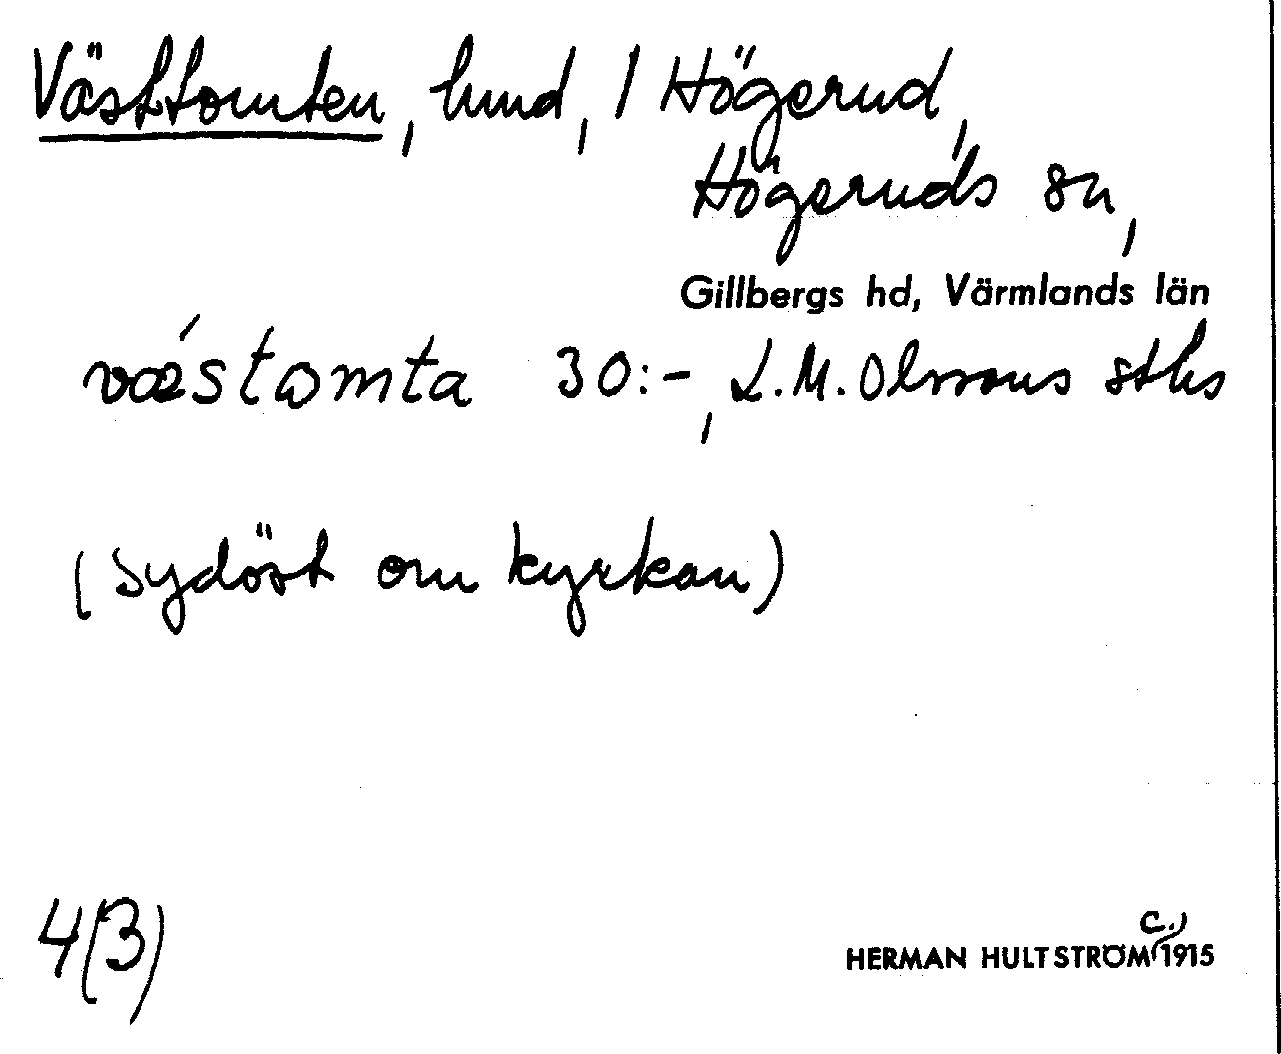 Västtomten, lund, / Högerud,
Högeruds sn,
Gillbergs hd, Värmlands län
væ´stomta 30:-, L.M. Olssons sths
(sydöst om kyrkan)
4(3)
c.)
HERMAN HULTSTRÖM 1915